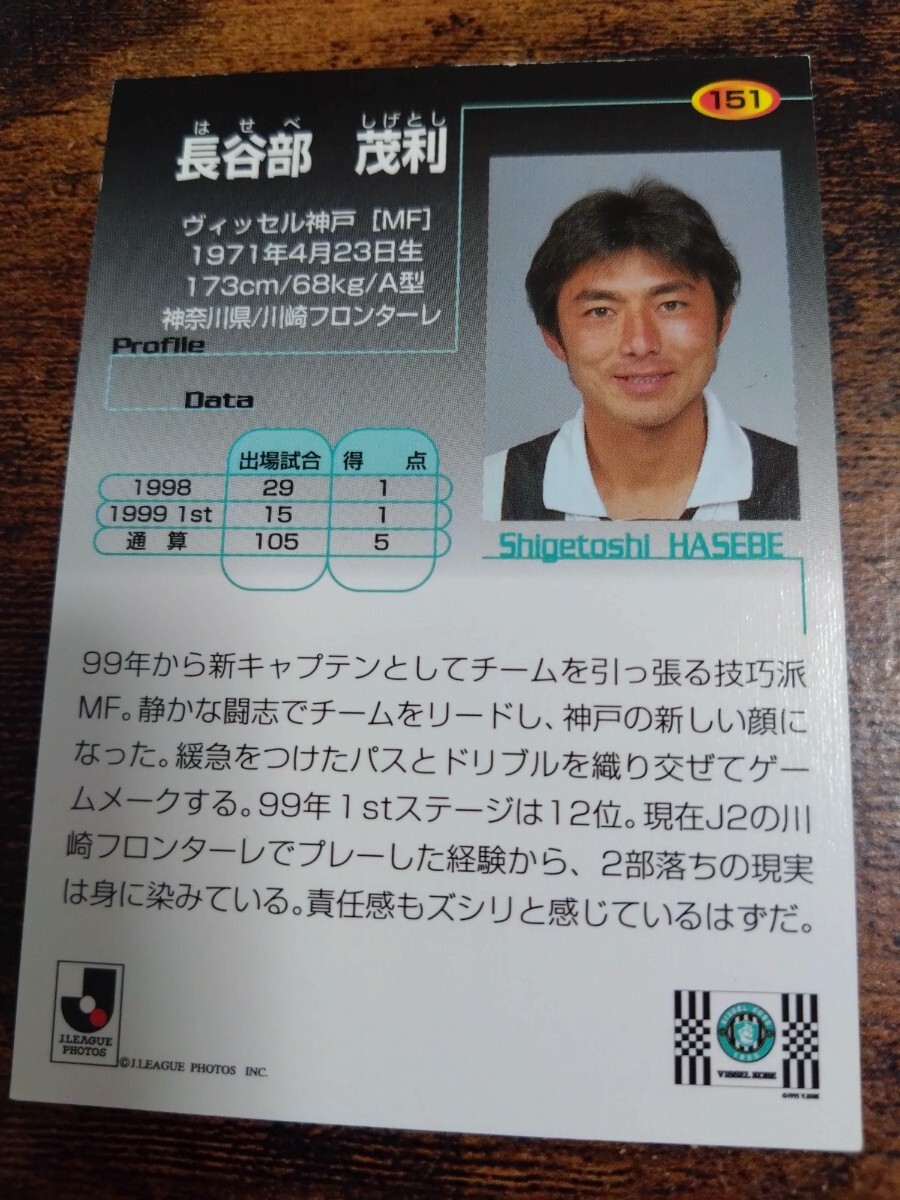 151
はせべ しげとし
長谷部 茂利
ヴィッセル神戸 [MF]
1971年4月23日生
173cm/68kg/A型
神奈川県/川崎フロンターレ
Profile
Data
出場試合 得点
1998 29 1
1999 1st 15 1
通算 105 5
Shigetoshi HASEBE
99年から新キャプテンとしてチームを引っ張る技巧派
MF。静かな闘志でチームをリードし、神戸の新しい顔に
なった。緩急をつけたパスとドリブルを織り交ぜてゲー
ムメークする。99年1stステージは12位。現在J2の川
崎フロンターレでプレーした経験から、2部落ちの現実
は身に染みている。責任感もズシリと感じているはずだ。
J.LEAGUE
PHOTOS
©J.LEAGUE PHOTOS INC.
VISSEL KOBE
1995
VISSEL KOBE